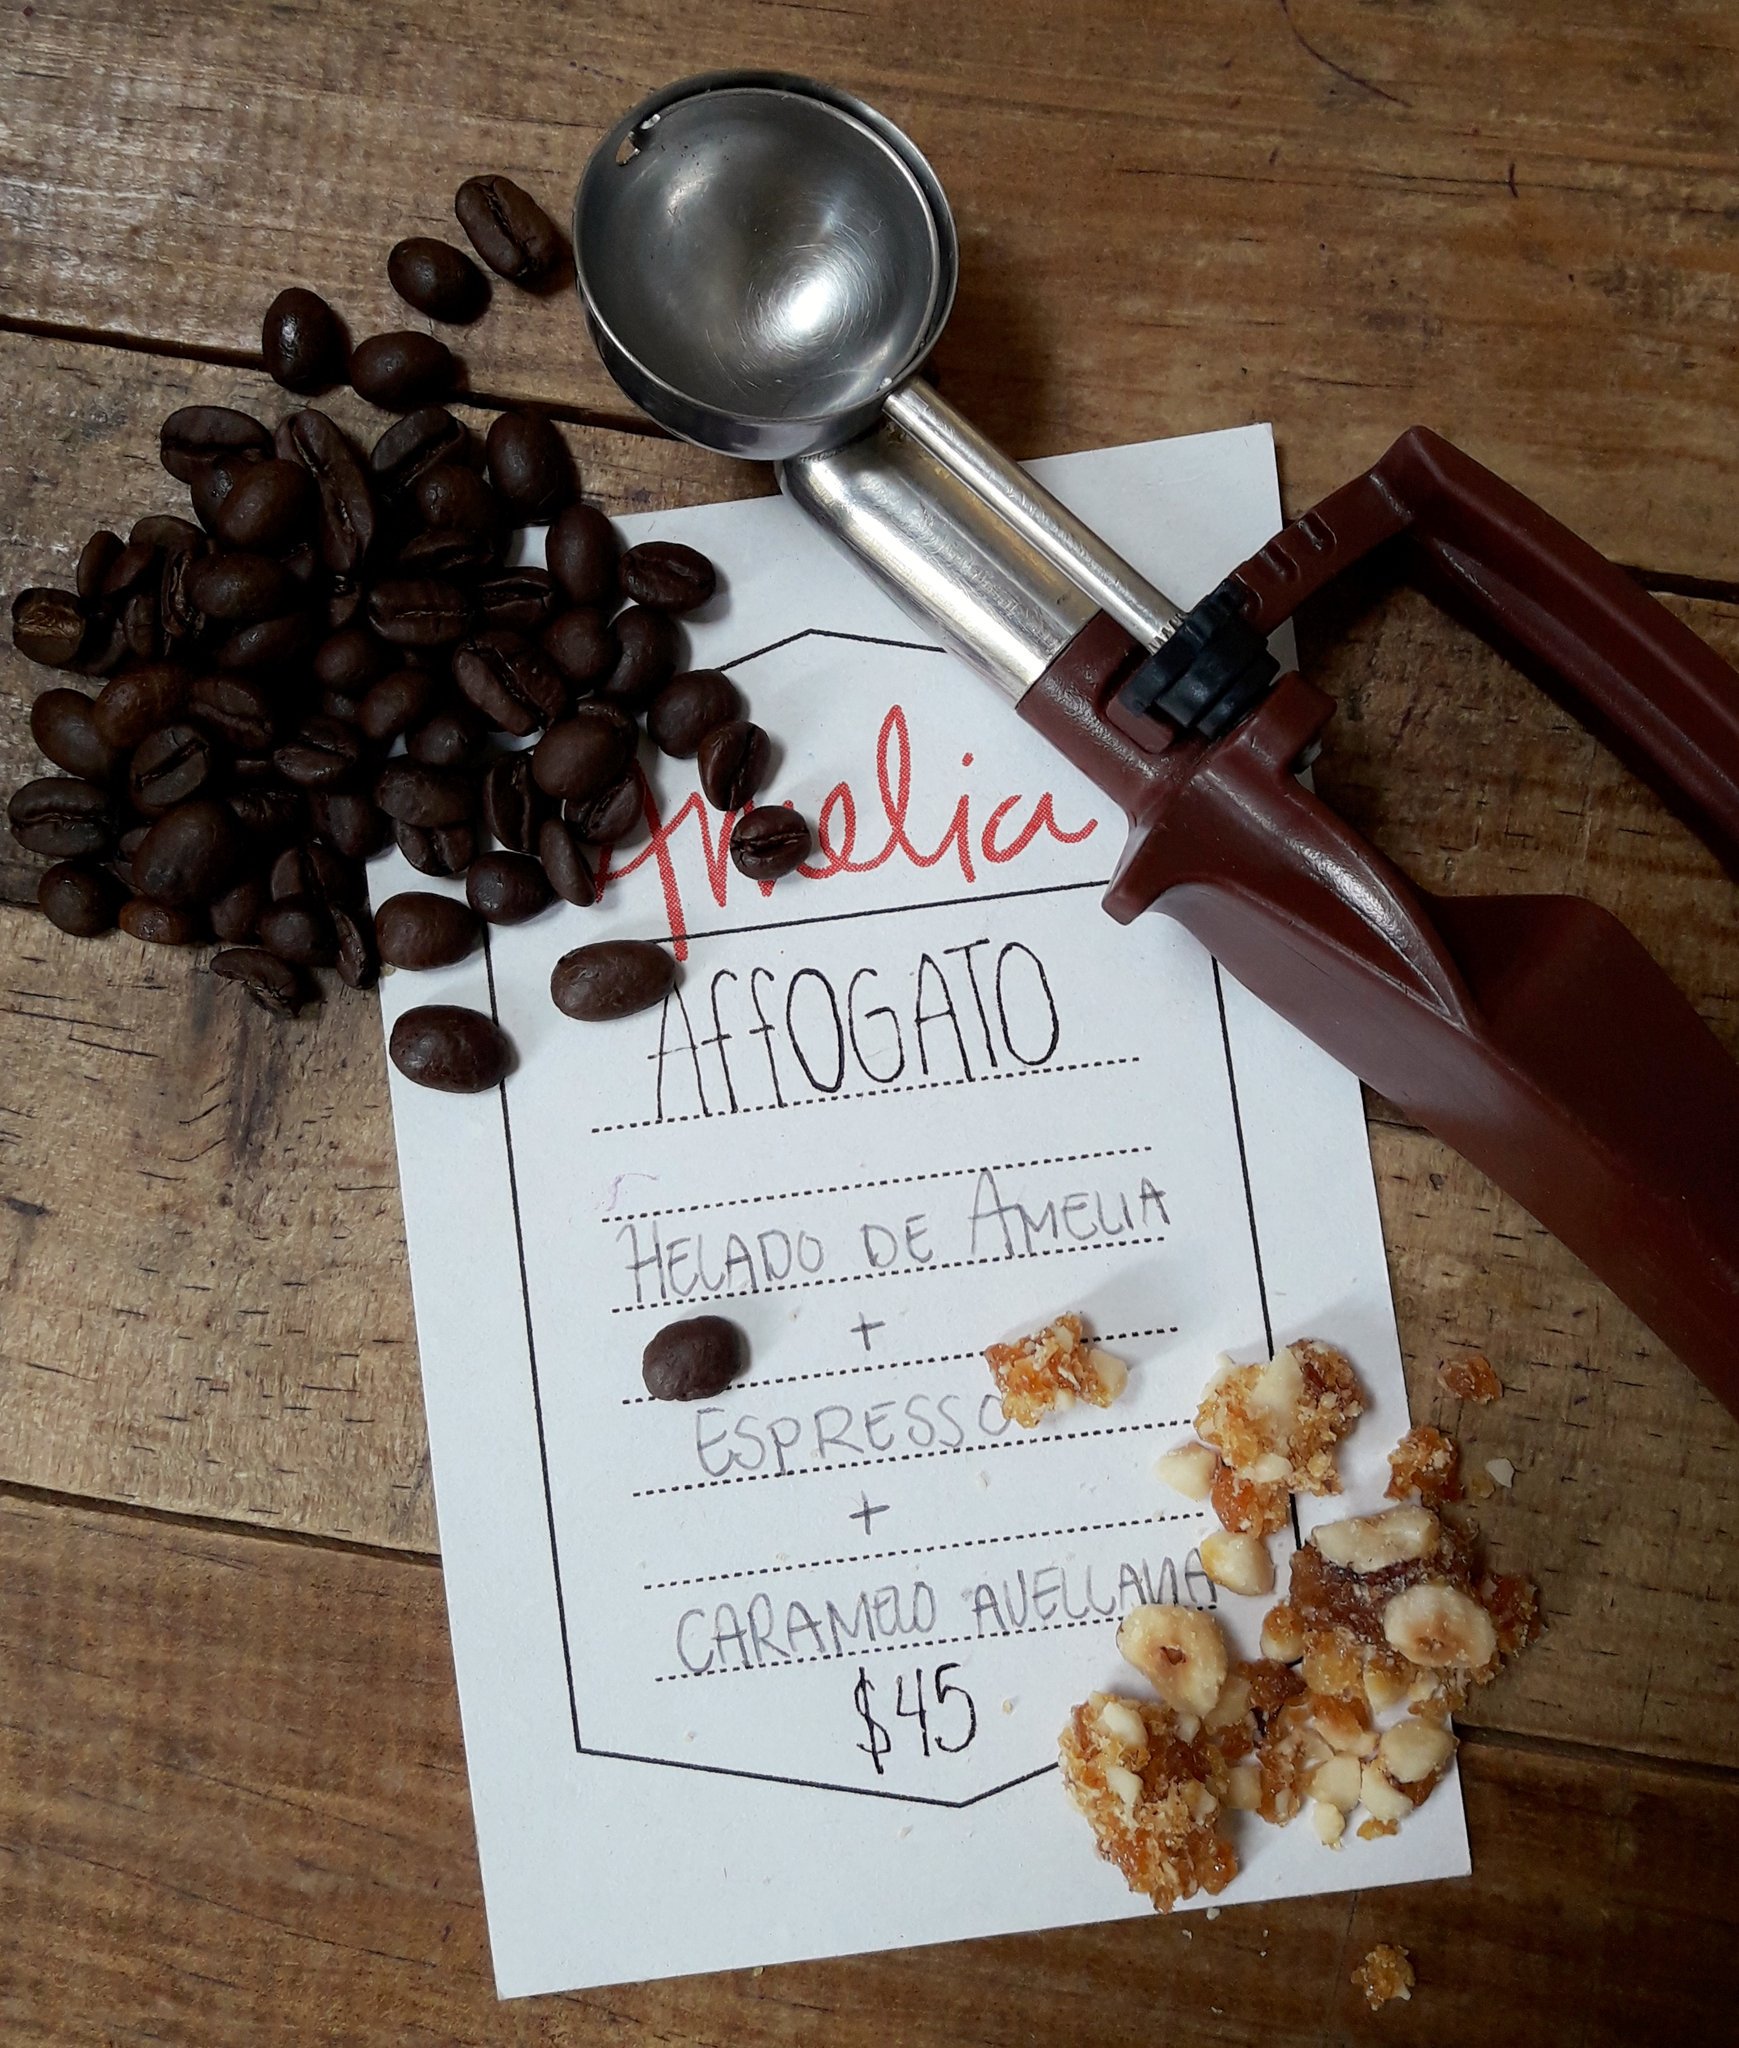 Amelia
AffOGATO
HELADO DE AMELIA
+
ESPRESSO
+
CARAMELO AVELLANA
$45